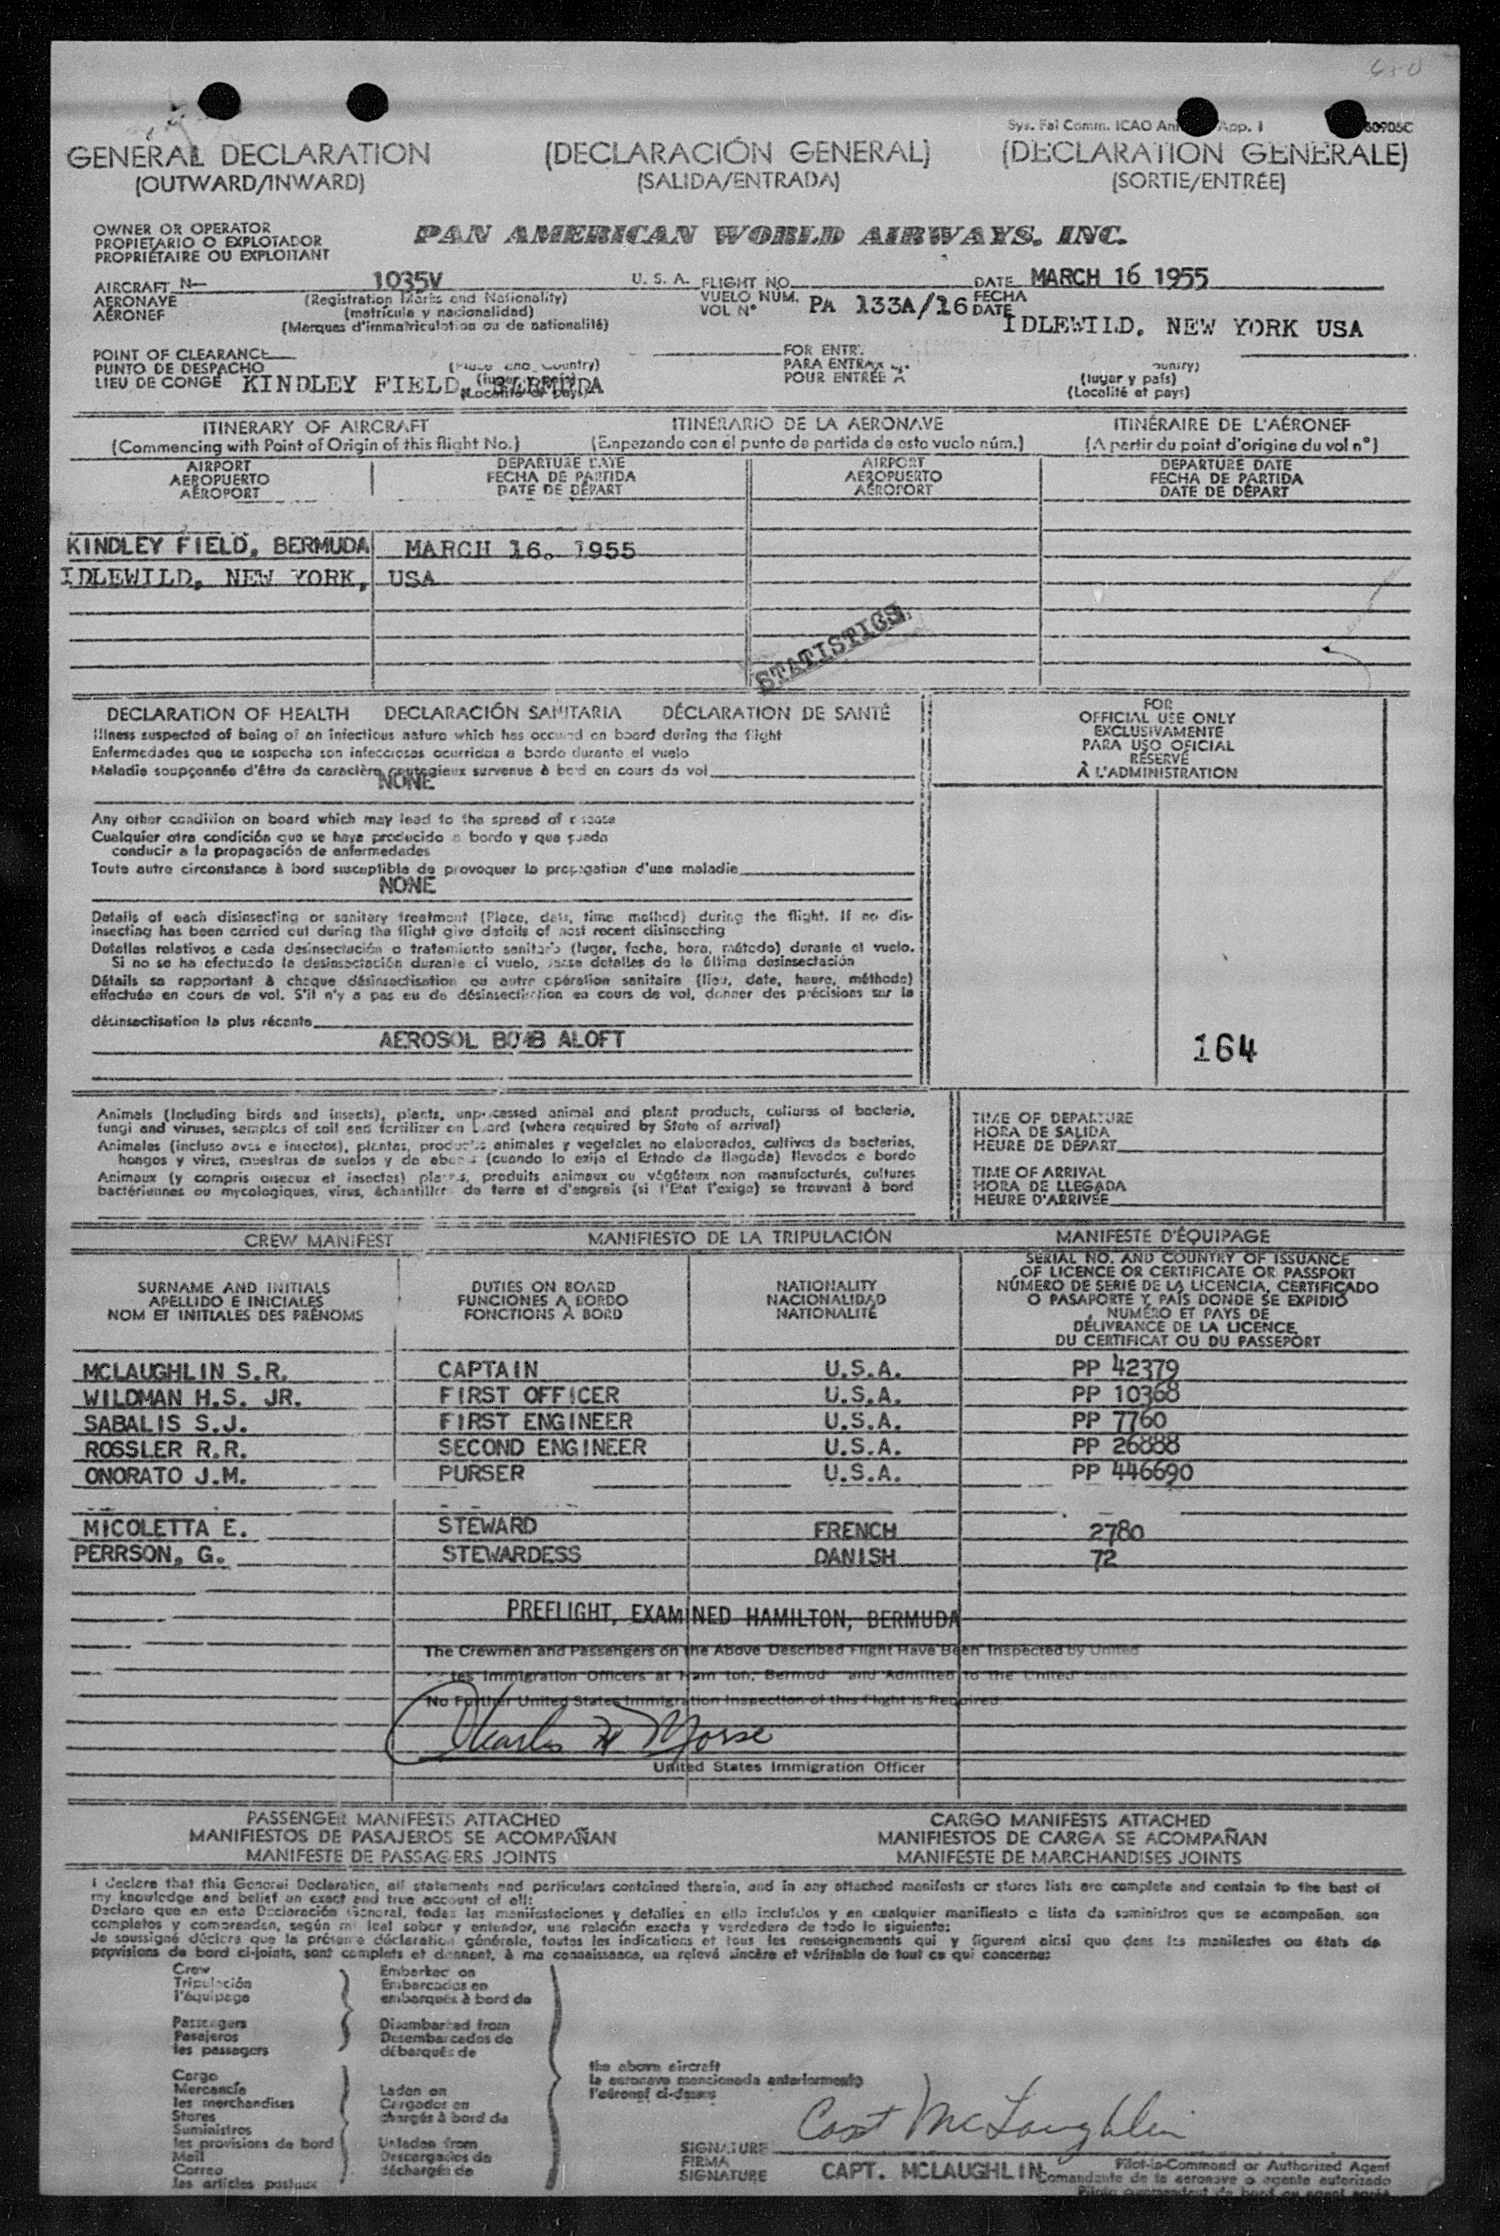 Sys. Fal Comm. ICAO App. I
GENERAL DECLARATION (DECLARACIÓN GENERAL) (DECLARATION GENERALE)
(OUTWARD/INWARD) (SALIDA/ENTRADA) (SORTIE/ENTRÉE)
OWNER OR OPERATOR
PROPIETARIO O EXPLOTADOR
PROPRIÉTAIRE OU EXPLOITANT
PAN AMERICAN WORLD AIRWAYS, INC.
AIRCRAFT N— 1035V U. S. A. FLIGHT NO. DATE MARCH 16 1955
AERONAVE (Registration Marks and Nationality) VUELO NÚM. PA 133A/16 FECHA
AÉRONEF (matrícula y nacionalidad) VOL N° DATE
(Marques d'immatriculation ou de nationalité)
IDLEWILD, NEW YORK USA
POINT OF CLEARANCE FOR ENTR.
PUNTO DE DESPACHO (Place and Country) PARA ENTRA
LIEU DE CONGÉ KINDLEY FIELD, BERMUDA POUR ENTRÉE À (lugar y país)
(Localité et pays)
ITINERARY OF AIRCRAFT ITINERARIO DE LA AERONAVE ITINÉRAIRE DE L'AÉRONEF
(Commencing with Point of Origin of this flight No.) (Enpezando con el punto de partida de esto vuelo núm.) (A partir du point d'origine du vol n°)
AIRPORT DEPARTURE DATE AIRPORT DEPARTURE DATE
AEROPUERTO FECHA DE PARTIDA AEROPUERTO FECHA DE PARTIDA
AÉROPORT DATE DE DÉPART AÉROPORT DATE DE DÉPART
KINDLEY FIELD, BERMUDA MARCH 16. 1955
IDLEWILD, NEW YORK, USA
STATISTICS
DECLARATION OF HEALTH DECLARACIÓN SANITARIA DÉCLARATION DE SANTÉ
Illness suspected of being of an infectious nature which has occured on board during the flight
Enfermedades que se sospecha son infecciosas ocurridas a bordo durante el vuelo
Maladie soupçonnée d'être de caractère contagieux survenue à bord en cours de vol
NONE
FOR
OFFICIAL USE ONLY
EXCLUSIVAMENTE
PARA USO OFICIAL
RÉSERVÉ
À L'ADMINISTRATION
Any other condition on board which may lead to the spread of disease
Cualquier otra condición que se haya producido a bordo y que pueda
conducir a la propagación de enfermedades
Toute autre circonstance à bord susceptible de provoquer la propagation d'une maladie
NONE
Details of each disinsecting or sanitary treatment (Place, date, time method) during the flight. If no dis-
insecting has been carried out during the flight give details of most recent disinsecting
Detalles relativos a cada desinsectación o tratamiento sanitario (lugar, fecha, hora, método) durante el vuelo.
Si no se ha efectuado la desinsectación durante el vuelo, dense detalles de la última desinsectación
Détails se rapportant à chaque désinsectisation ou autre opération sanitaire (lieu, date, heure, méthode)
effectuée en cours de vol. S'il n'y a pas eu de désinsectisation en cours de vol, donner des précisions sur la
désinsectisation la plus récente
AEROSOL BOMB ALOFT
164
Animals (Including birds and insects), plants, unprocessed animal and plant products, cultures of bacteria,
fungi and viruses, samples of soil and fertilizer on board (where required by State of arrival)
Animales (incluso aves e insectos), plantas, productos animales y vegetales no elaborados, cultivos de bacterias,
hongos y virus, muestras de suelos y de abonos (cuando lo exija el Estado de llagada) llevados a bordo
Animaux (y compris oiseaux et insectes) plantes, produits animaux ou végétaux non manufacturés, cultures
bactériennes ou mycologiques, virus, échantillons de terre et d'engrais (si l'Etat l'exige) se trouvant à bord
TIME OF DEPARTURE
HORA DE SALIDA
HEURE DE DÉPART
TIME OF ARRIVAL
HORA DE LLEGADA
HEURE D'ARRIVÉE
CREW MANIFEST MANIFIESTO DE LA TRIPULACIÓN MANIFESTE D'ÉQUIPAGE
SURNAME AND INITIALS
APELLIDO E INICIALES
NOM ET INITIALES DES PRÉNOMS
DUTIES ON BOARD
FUNCIONES A BORDO
FONCTIONS À BORD
NATIONALITY
NACIONALIDAD
NATIONALITÉ
SERIAL NO. AND COUNTRY OF ISSUANCE
OF LICENCE OR CERTIFICATE OR PASSPORT
NÚMERO DE SERIE DE LA LICENCIA, CERTIFICADO
O PASAPORTE Y PAÍS DONDE SE EXPIDIÓ
NUMÉRO ET PAYS DE
DÉLIVRANCE DE LA LICENCE
DU CERTIFICAT OU DU PASSEPORT
MCLAUGHLIN S.R. CAPTAIN U.S.A. PP 42379
WILDMAN H.S. JR. FIRST OFFICER U.S.A. PP 10368
SABALIS S.J. FIRST ENGINEER U.S.A. PP 7760
ROSSLER R.R. SECOND ENGINEER U.S.A. PP 26888
ONORATO J.M. PURSER U.S.A. PP 446690
MICOLETTA E. STEWARD FRENCH 2780
PERRSON, G. STEWARDESS DANISH 72
PREFLIGHT, EXAMINED HAMILTON, BERMUDA
The Crewmen and Passengers on the Above Described Flight Have Been Inspected by United
Immigration Officers at and Admitted to the United States
No Further United States Immigration Inspection of this Flight is Required.
Charles H Morse
United States Immigration Officer
PASSENGER MANIFESTS ATTACHED CARGO MANIFESTS ATTACHED
MANIFIESTOS DE PASAJEROS SE ACOMPAÑAN MANIFIESTOS DE CARGA SE ACOMPAÑAN
MANIFESTE DE PASSAGERS JOINTS MANIFESTE DE MARCHANDISES JOINTS
I declare that this General Declaration, all statements and particulars contained therein, and in any attached manifests or stores lists are complete and contain to the best of
my knowledge and belief an exact and true account of all:
Declaro que en esta Declaración General, todas las manifestaciones y detalles en ella incluídos y en cualquier manifiesto o lista de suministros que se acompañan, son
completos y comprenden, según mi leal saber y entender, una relación exacta y verdadera de todo lo siguiente:
Je soussigné déclare que la présente déclaration générale, toutes les indications et tous les renseignements qui y figurent ainsi que dans les manifestes ou états de
provisions de bord ci-joints, sont complets et donnent, à ma connaissance, un relevé sincère et véritable de tout ce qui concerne:
Crew Embarked on
Tripulación Embarcados en
l'équipage embarqués à bord de
Passengers Disembarked from
Pasajeros Desembarcados de
les passagers débarqués de
Cargo
Mercancía Laden on
les merchandises Cargados en
Stores chargés à bord de
Suministros
les provisions de bord Unladen from
Mail Descargados de
Correo déchargés de
les articles postaux
the above aircraft
la aeronave mencionada anteriormente
l'aéronef ci-dessus
Capt McLaughlin
SIGNATURE
FIRMA
SIGNATURE
CAPT. MCLAUGHLIN
Pilot-in-Command or Authorized Agent
Comandante de la aeronave o agente autorizado